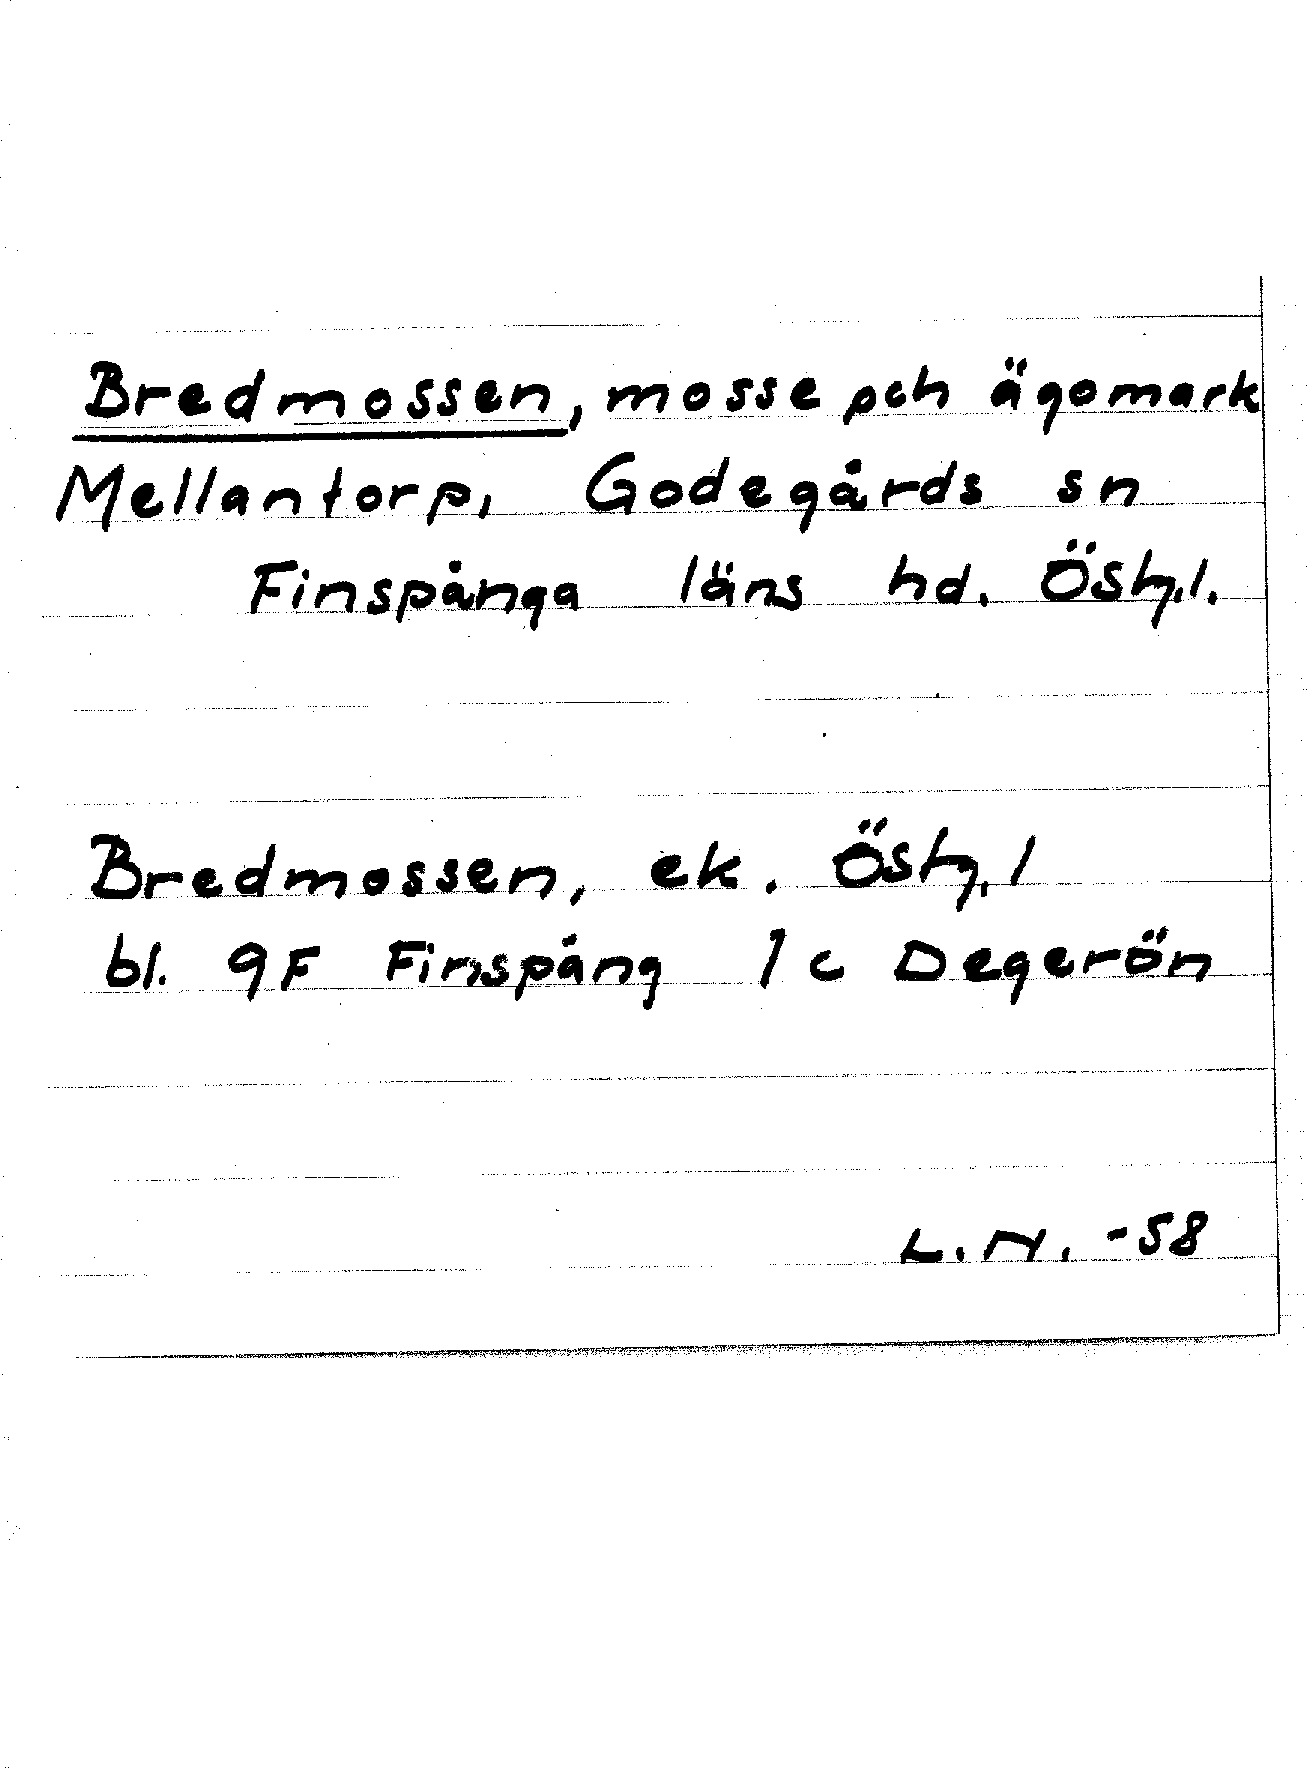 Bredmossen, mosse och ägomark
Mellantorp, Godegårds sn
Finspånga läns hd. Östg.l.
Bredmossen, ek. Östg.l
bl. 9F Finspång 1c Degerön
L.N. -58